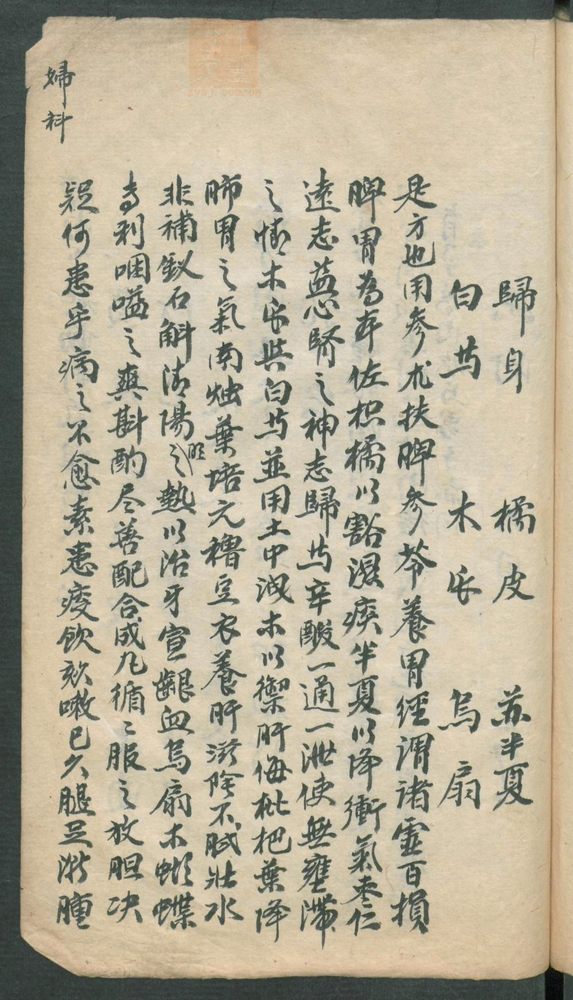 歸身　橘皮　苏半夏
白芍　木瓜　烏扇
是方也用參朮扶脾參苓養胃經謂諸虛百損
脾胃為本佐枳橘以豁濕痰半夏以降衝氣棗仁
遠志益心腎之神志歸芍辛酸一通一泄使無壅滯
之情木瓜與白芍並用土中泄木以禦肝侮枇杷葉降
肺胃之氣南燭葉培元穭豆衣養肝滋陰不膩壯水
非補釵石斛清陽明之熱以治牙宣齦血烏扇木蝴蝶
專利咽嗌之爽斟酌尽善配合成丸循〻服之放胆决
疑何患乎病之不愈素患痰飲欬嗽已久腿足漸腫
婦科